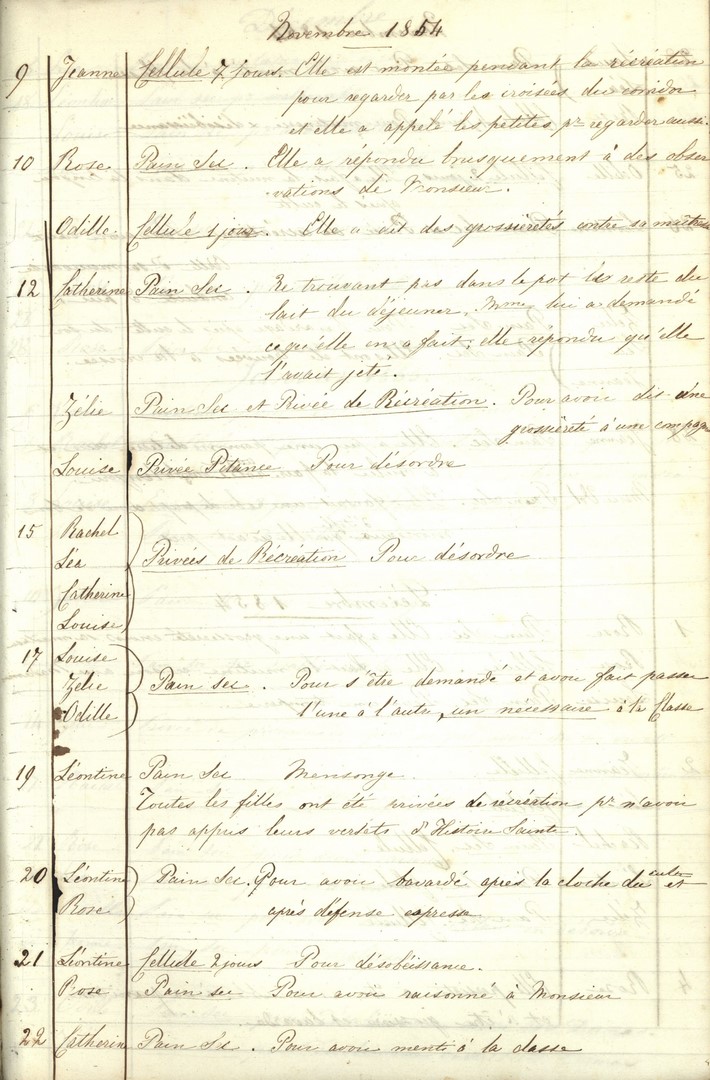 Novembre 1854
9 Jeanne Cellule 7 jours. Elle est montée pendant la récréation
pour regarder par les croisées du corridor
et elle a appelé les petites pr regarder aussi.
10 Rose Pain Sec. Elle a répondu brusquement à des obser
vations de Monsieur.
Odille. Cellule 1 jour. Elle a dit des grossièretés contre sa maîtresse
12 Catherine Pain Sec. Ne trouvant pas dans le pot le reste du
lait du déjeuner, Mme lui a demandé
ce qu'elle en a fait; elle répondu qu'elle
l'avait jeté.
Zélie Pain Sec et Privée de Récréation. Pour avoir dis une
grossièreté à une compagne
Louise Privée Pitance Pour désordre
15 Rachel
Léa Privées de Récréation Pour désordre
Catherine
Louise
17 Louise
Zélie Pain sec. Pour s'être demandé et avoir fait passer
Odille l'une à l'autre, un nécessaire à la Classe
19 Léontine Pain Sec Mensonge
Toutes les filles ont été privées de récréation pr n'avoir
pas appris leurs versets d'Histoire Sainte.
20 Léontine Pain Sec. Pour avoir bavardé après la cloche du et
Rose après défense expresse
21 Léontine Cellule 2 jours Pour désobéissance.
Rose Pain sec Pour avoir raisonné à Monsieur
22 Catherine Pain Sec. Pour avoir menti à la classe